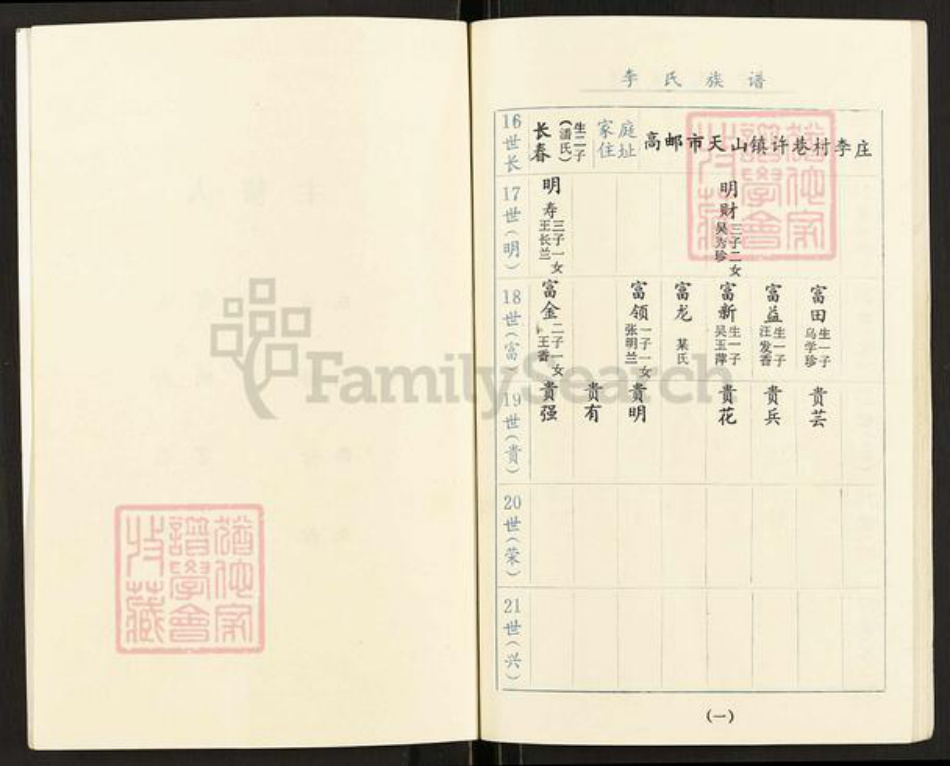 李氏族谱
16世长
长春
(潘氏)生二子
家庭住址
高邮市天山镇许巷村李庄
17世(明)
明寿
王长兰 三子一女
明财
吴秀珍 三子二女
18世(富)
富金
王香 二子一女
富领
张明兰 一子一女
富龙
某氏
富新
吴玉萍 生一子
富益
汪发香 生一子
富田
乌学珍 生一子
19世(貴)
貴强
貴有
貴明
貴花
貴兵
貴芸
20世(荣)
21世(兴)
(一)
FamilySearch